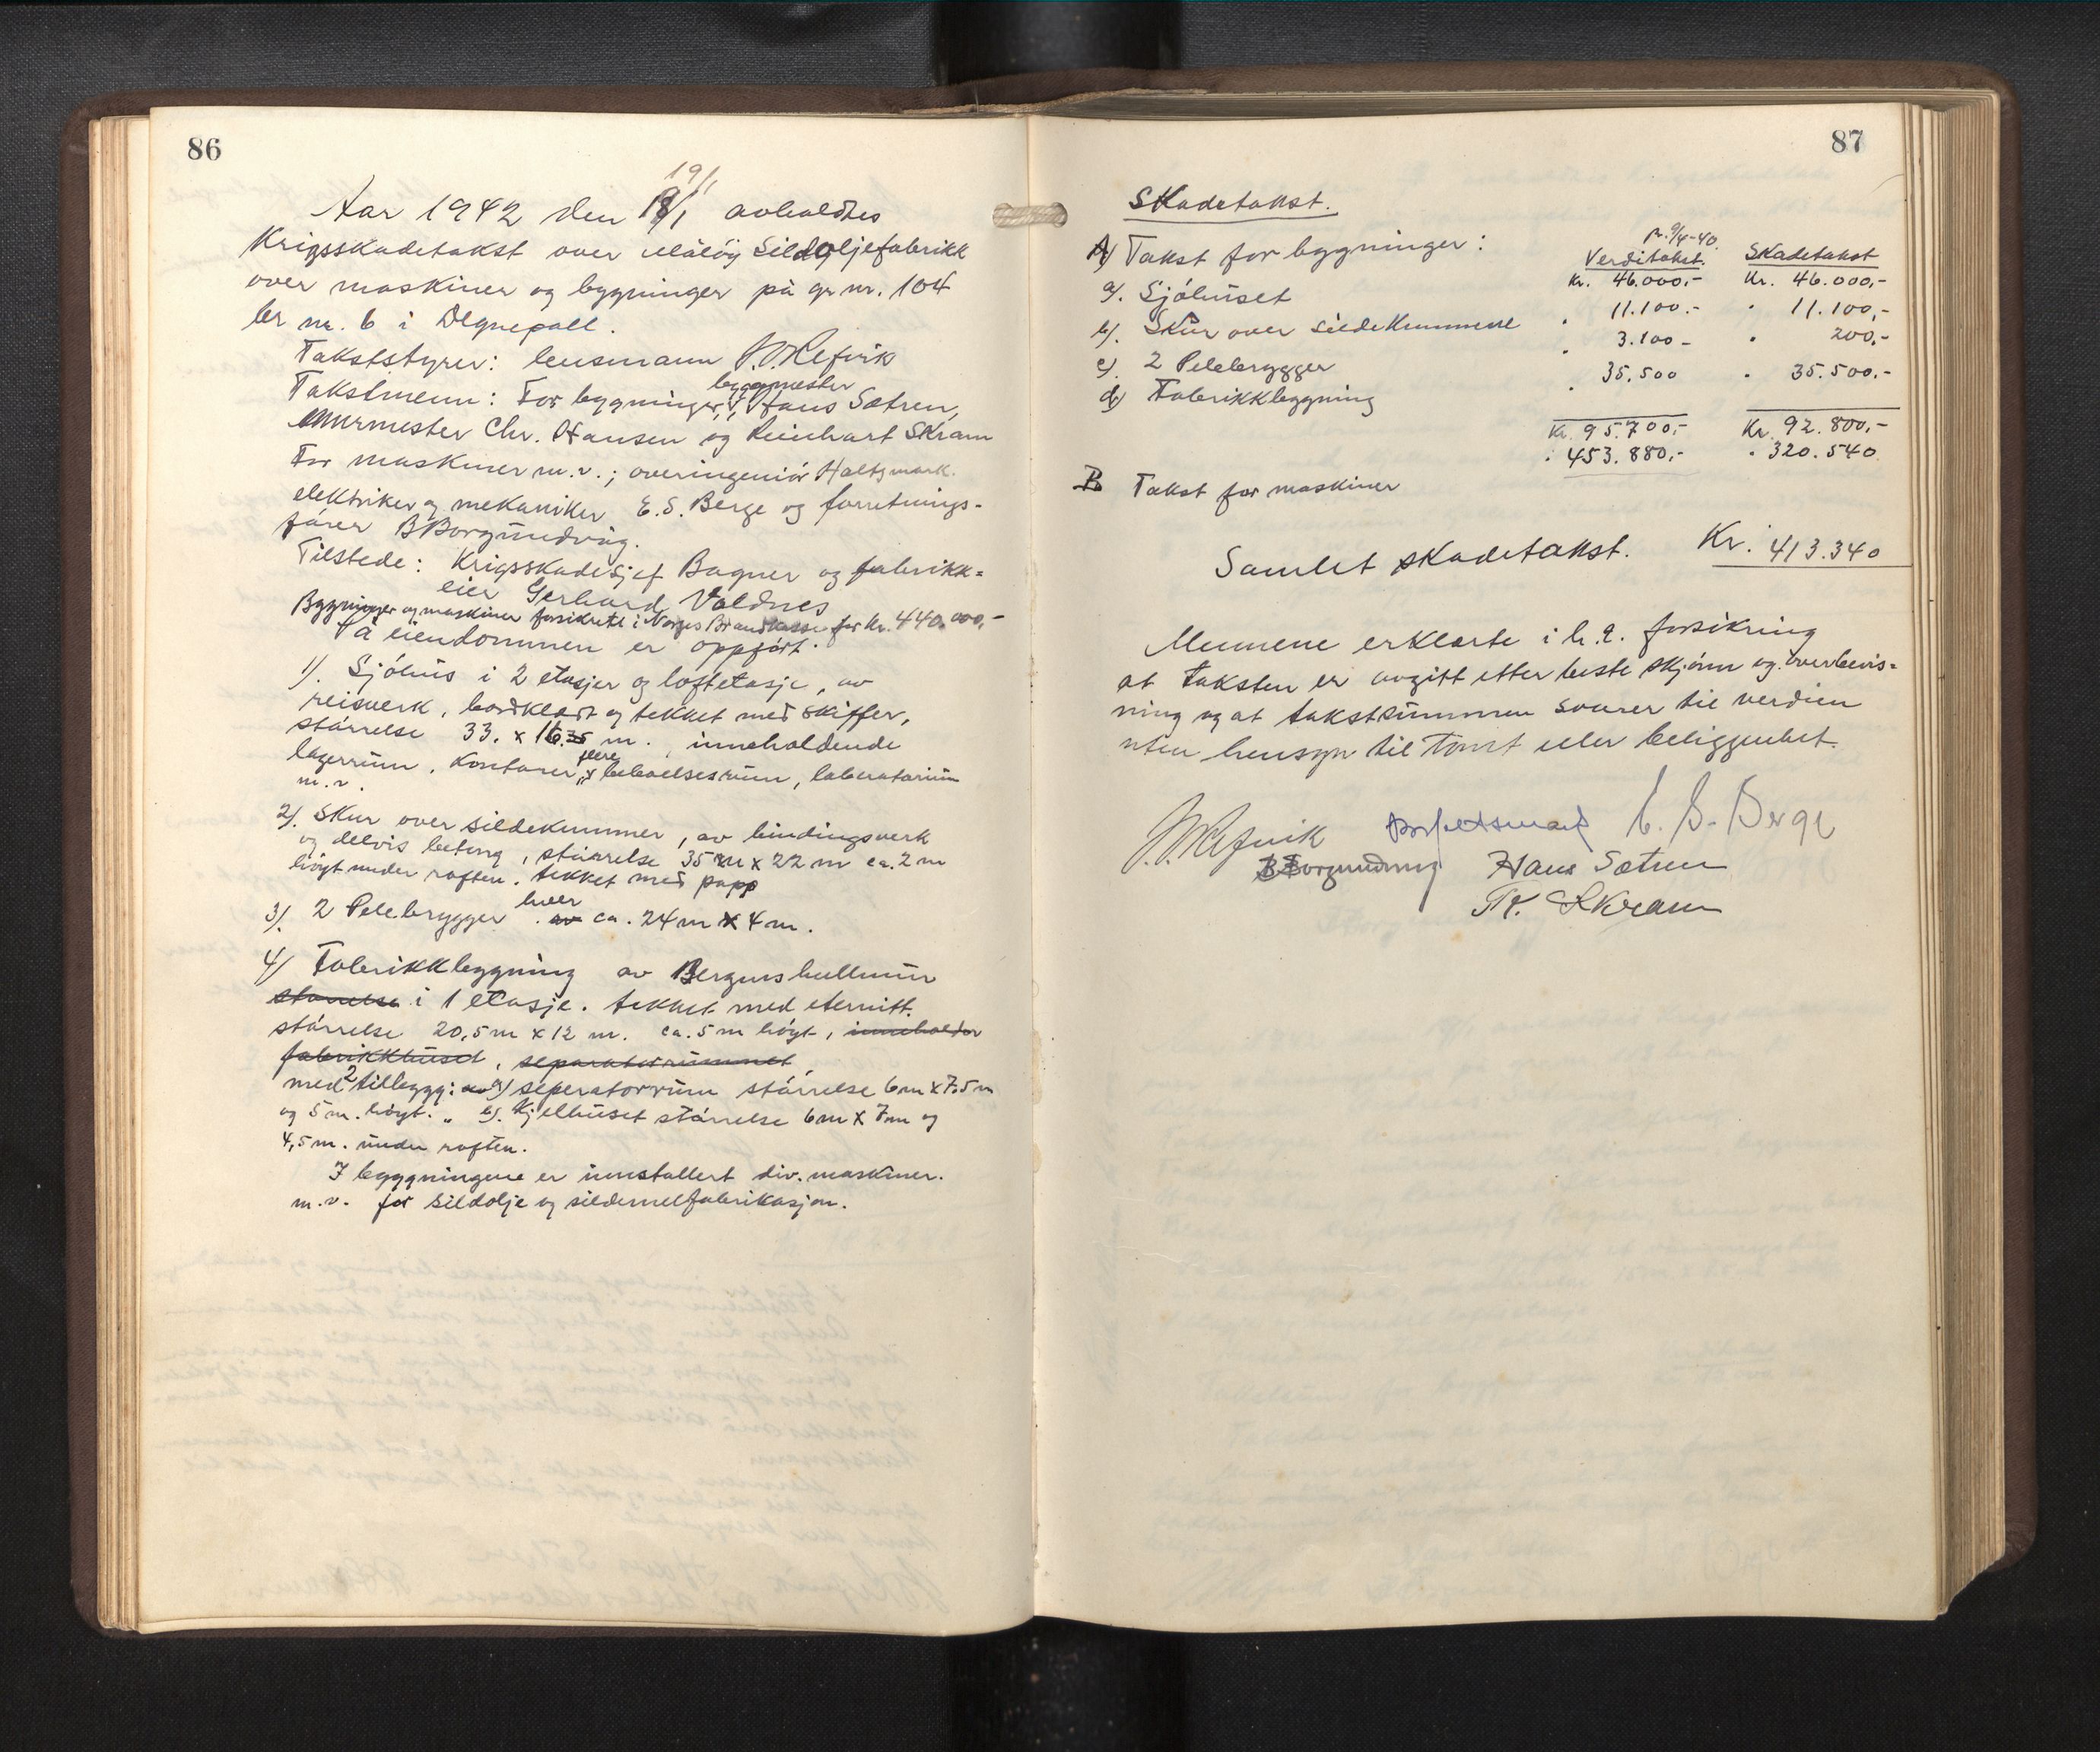 86
19/1
Aar 1942 den 18/1 avholdtes
Krigsskadetakst over Måløy Sildoljefabrikk
over maskiner og bygninger på gr nr. 104
br nr. 6 i Degnepoll.
Takststyrer: lensmann Refvik
byggmester
Takstmenn: For bygninger, Hans Sætren,
murmester Chr. Hansen og Reinhart Skram
For maskiner m.v.; overingeniør Holtsmark.
elektriker og mekaniker E.S. Berge og forretnings-
fører B Borgundvåg.
Tilstede: Krigsskadesjef Bagner og fabrikk=
eier Gerhard Voldnes
Bygninger og maskiner forsikret i Norges Brandkasse for kr. 440.000,-
På eiendommen er oppført:
1). Sjøhus i 2 etasjer og loftetasje, av
reisverk, bordkledt og tekket med skiffer,
størrelse 33. x 16.35 m. , inneholdende
lagerrum, kontorer, flere beboelsesrum, laboratorium
m.v.
2). Skur over sildekummer, av bindingsverk
og delvis betong, størrelse 35 m x 22 m ca. 2 m
høyt under raften. tekket med papp
hver
3). 2 Pelebrygger av ca. 24 m x 4 m.
4) Fabrikkbygning av Bergenshullmur
størrelse i 1 etasje. tekket med eternitt.
størrelse 20,5 m x 12 m. ca. 5 m høyt, inneholder
fabrikkhuset, separatorrummet
med 2 tilbygg: a) seperatorrum størrelse 6 m x 7.5 m
og 5 m. høyt. " b). Kjelhuset størrelse 6 m x 7 m og
4,5 m. under raften.
I bygningene er innstallert div. maskiner.
m.v. for sildolje og sildemelfabrikasjon.
87
Skadetakst.
A) Takst for bygninger:
pr. 9/4-40.
Verditakst. Skadetakst
a). Sjøhuset Kr. 46.000,- Kr. 46.000,-
b). Skur over sildekummene " 11.100.- " 11.100,-
c). 2 Pelebrygger " 3.100- " 200,-
d) Fabrikkbygning " 35.500 " 35.500.-
Kr. 95.700,- Kr. 92.800,-
B Takst for maskiner " 453.880,- " 320.540
Samlet skadetakst. Kr. 413.340
Mennene erklærte i h.t. forsikring
at taksten er avgitt etter beste skjønn og overbevis=
ning og at takstsummen svarer til verdien
uten hensyn til tomt eller beliggenhet.
Refvik Holtsmark E. S. Berge
B Borgundvåg Hans Sætren
R. Skram